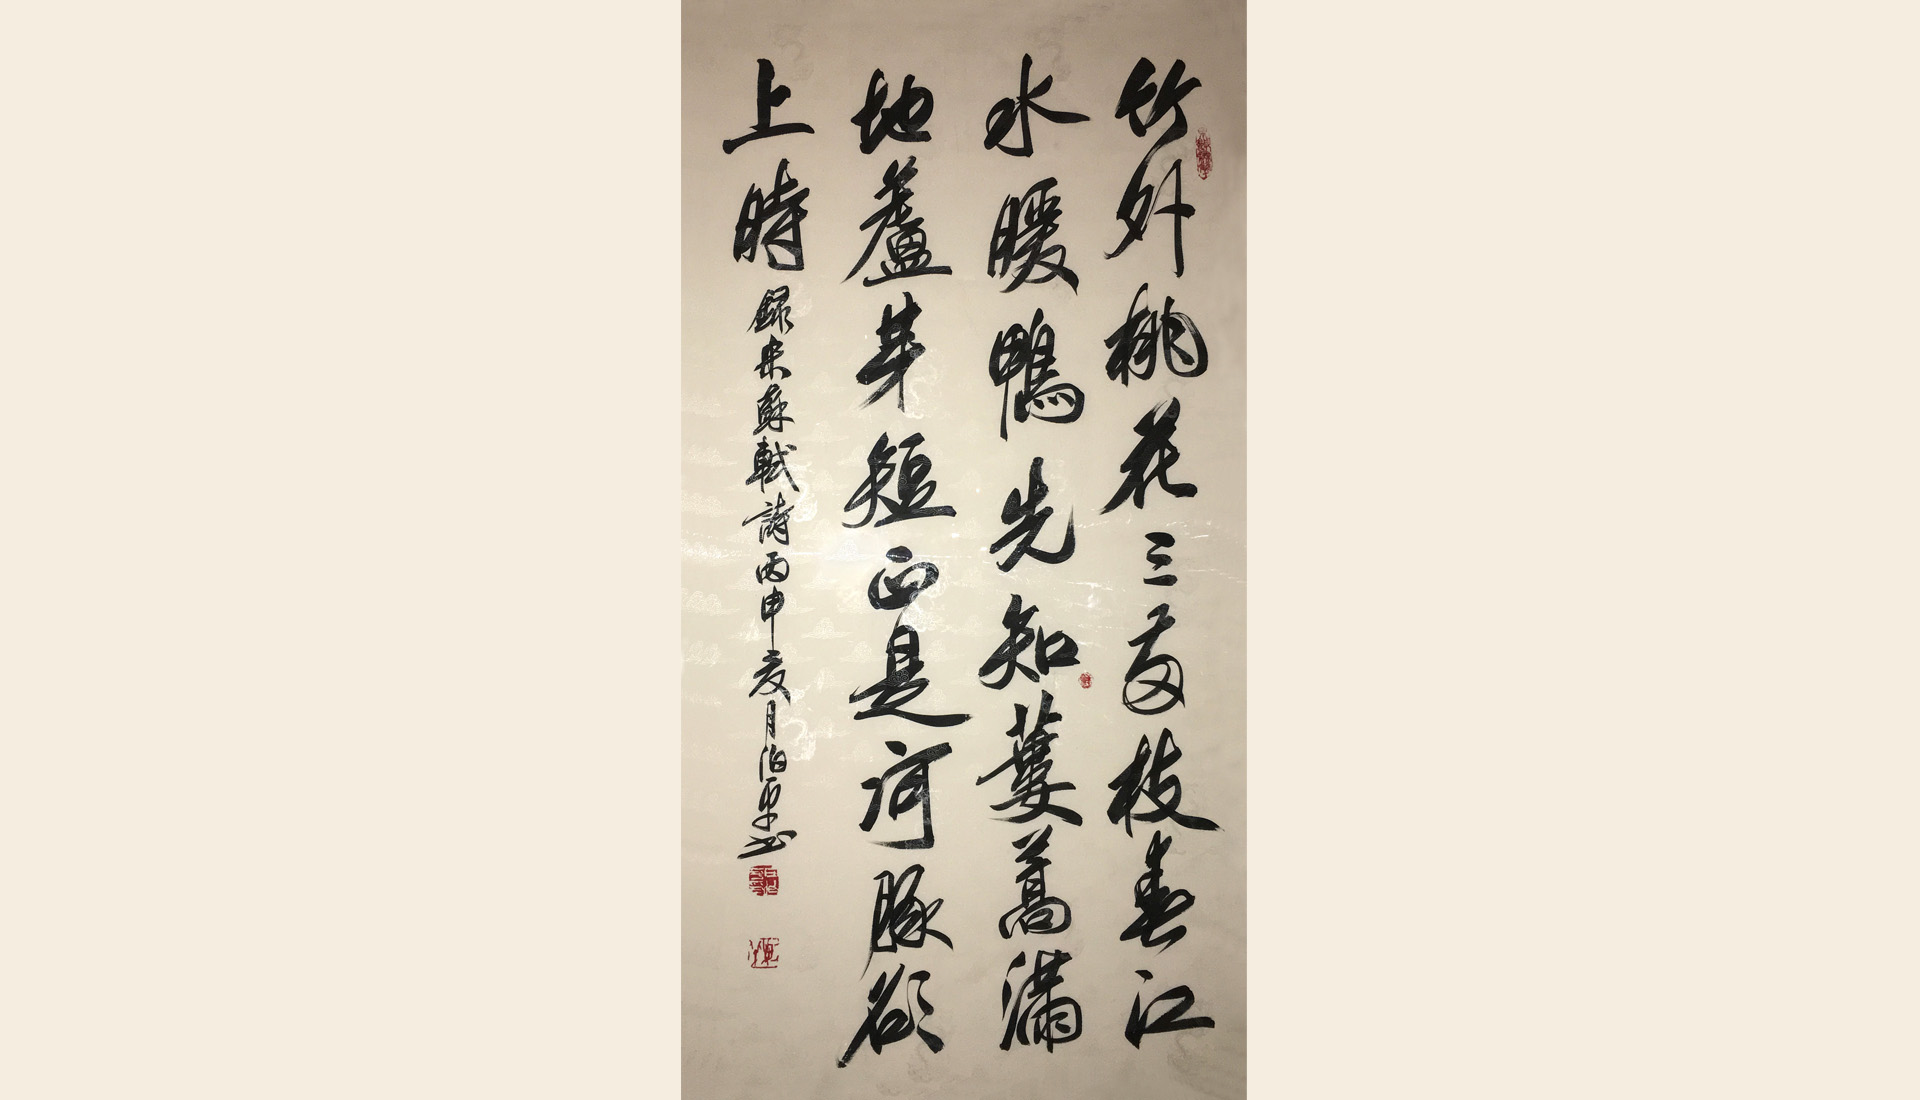 竹外桃花三兩枝春江
水暖鴨先知蔞蒿滿
地蘆芽短正是河豚欲
上時
錄宋蘇軾詩丙申夏月泊平书